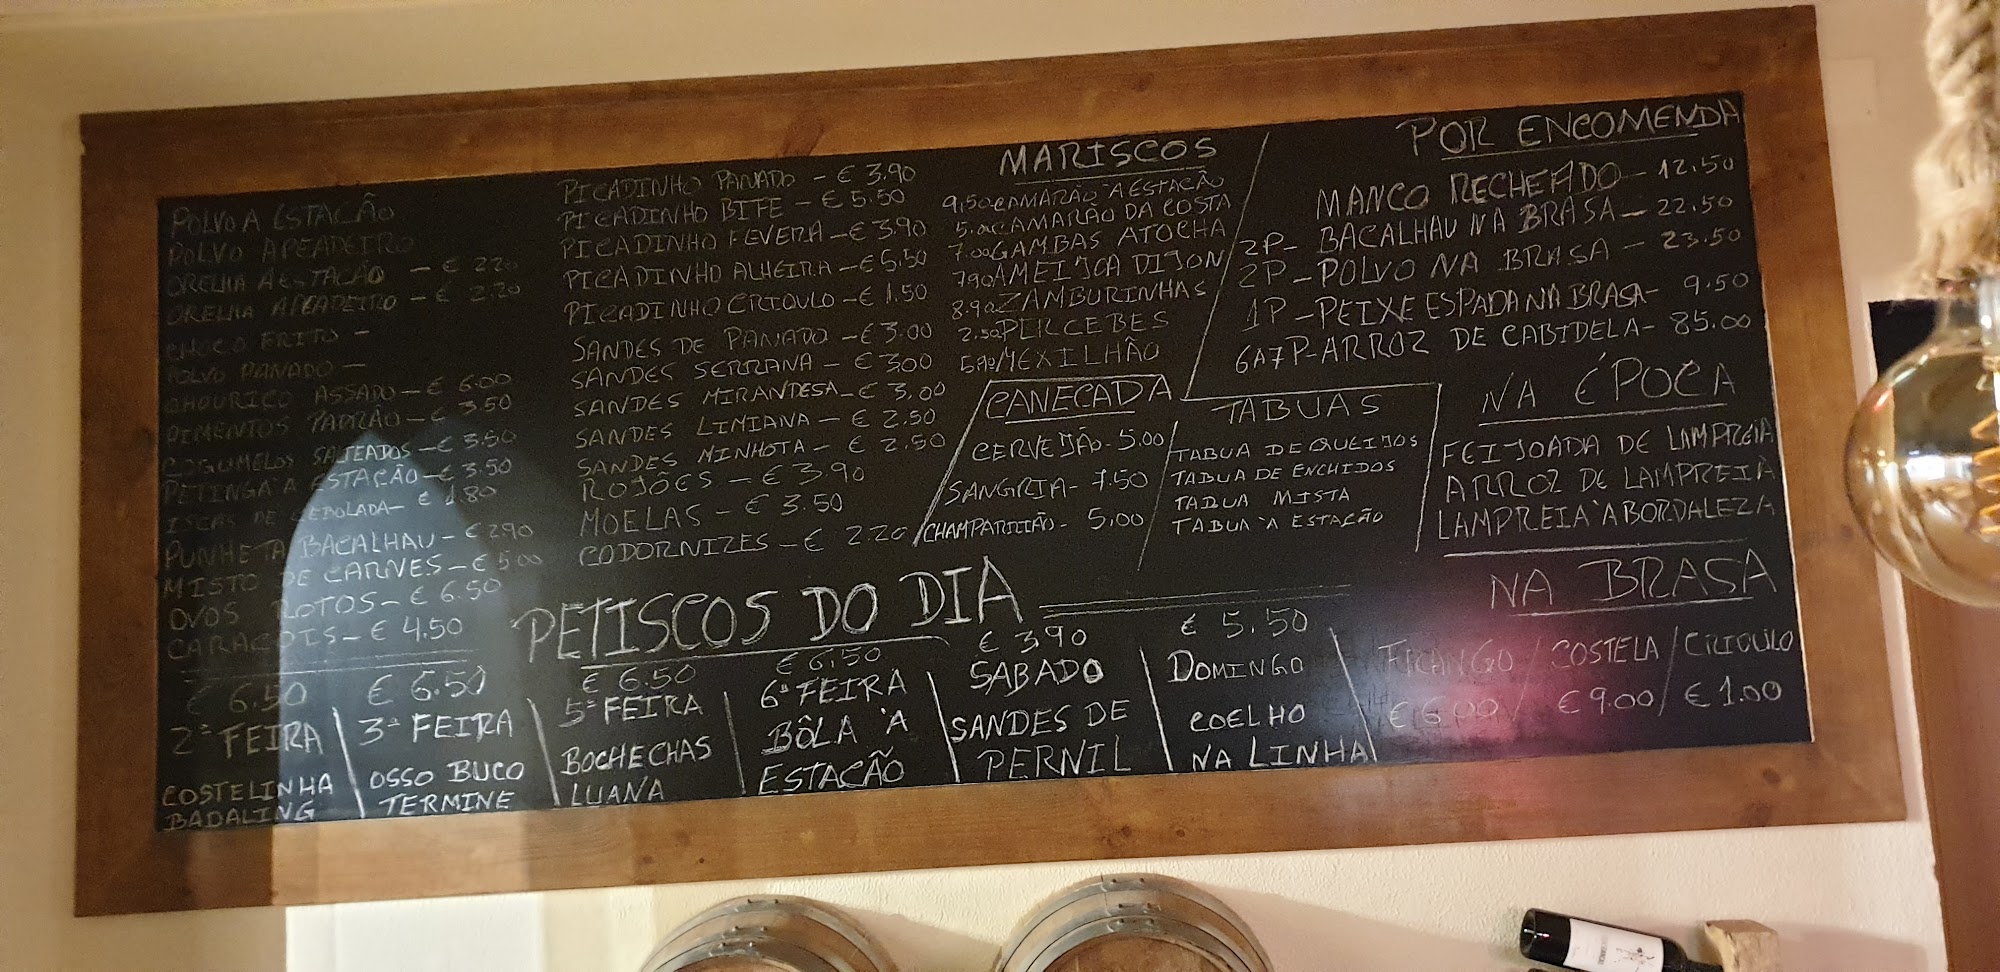 POLVO A ESTAÇÃO
POLVO APEADEIRO
ORELHA A ESTAÇÃO - € 2.20
ORELHA APEADEIRO - € 2.20
CHOCO FRITO -
POLVO PANADO -
CHOURICO ASSADO - € 6.00
PIMENTOS PADRÃO - € 3.50
COGUMELOS SALTEADOS - € 3.50
PETINGA À ESTAÇÃO - € 3.50
ISCAS DE CEBOLADA - € 1.80
PUNHETA BACALHAU - € 2.90
MISTO DE CARNES - € 5.00
OVOS ROTOS - € 6.50
CARACOIS - € 4.50
PICADINHO PANADO - € 3.90
PICADINHO BIFE - € 5.50
PICADINHO FEVERA - € 3.90
PICADINHO ALHEIRA - € 5.50
PICADINHO CRIOULO - € 1.50
SANDES DE PANADO - € 3.00
SANDES SERRANA - € 3.00
SANDES MIRANDESA - € 3.00
SANDES LIMIANA - € 2.50
SANDES MINHOTA - € 2.50
ROJÕES - € 3.90
MOELAS - € 3.50
CODORNIZES - € 2.20
MARISCOS
9,50 CAMARÃO À ESTAÇÃO
CAMARÃO DA COSTA
7.00 GAMBAS ATOCHA
7.90 AMEIJOA DIJON
8.90 ZAMBURINHAS
2.50 PERCEBES
MEXILHÃO
CANECADA
CERVEJÃO - 5.00
SANGRIA - 7.50
CHAMPARRIÃO - 5,00
POR ENCOMENDA
MANCO RECHEADO - 12.50
2P - BACALHAU NA BRASA - 22.50
2P - POLVO NA BRASA - 23.50
1P - PEIXE ESPADA NA BRASA - 9.50
6A7P - ARROZ DE CABIDELA - 85.00
TABUAS
TABUA DE QUEIJOS
TABUA DE ENCHIDOS
TABUA MISTA
TABUA À ESTAÇÃO
NA ÉPOCA
FEIJOADA DE LAMPREIA
ARROZ DE LAMPREIA
LAMPREIA À BORDALEZA
PETISCOS DO DIA
€ 6.50
2ª FEIRA
COSTELINHA
BADALING
€ 6.50
3ª FEIRA
OSSO BUCO
TERMINE
€ 6.50
5ª FEIRA
BOCHECHAS
LUANA
€ 6.50
6ª FEIRA
BÔLA À
ESTAÇÃO
€ 3,90
SABADO
SANDES DE
PERNIL
€ 5.50
DOMINGO
COELHO
NA LINHA
NA BRASA
FRANGO / COSTELA / CRIOULO
€ 6.00 / € 9.00 / € 1.00